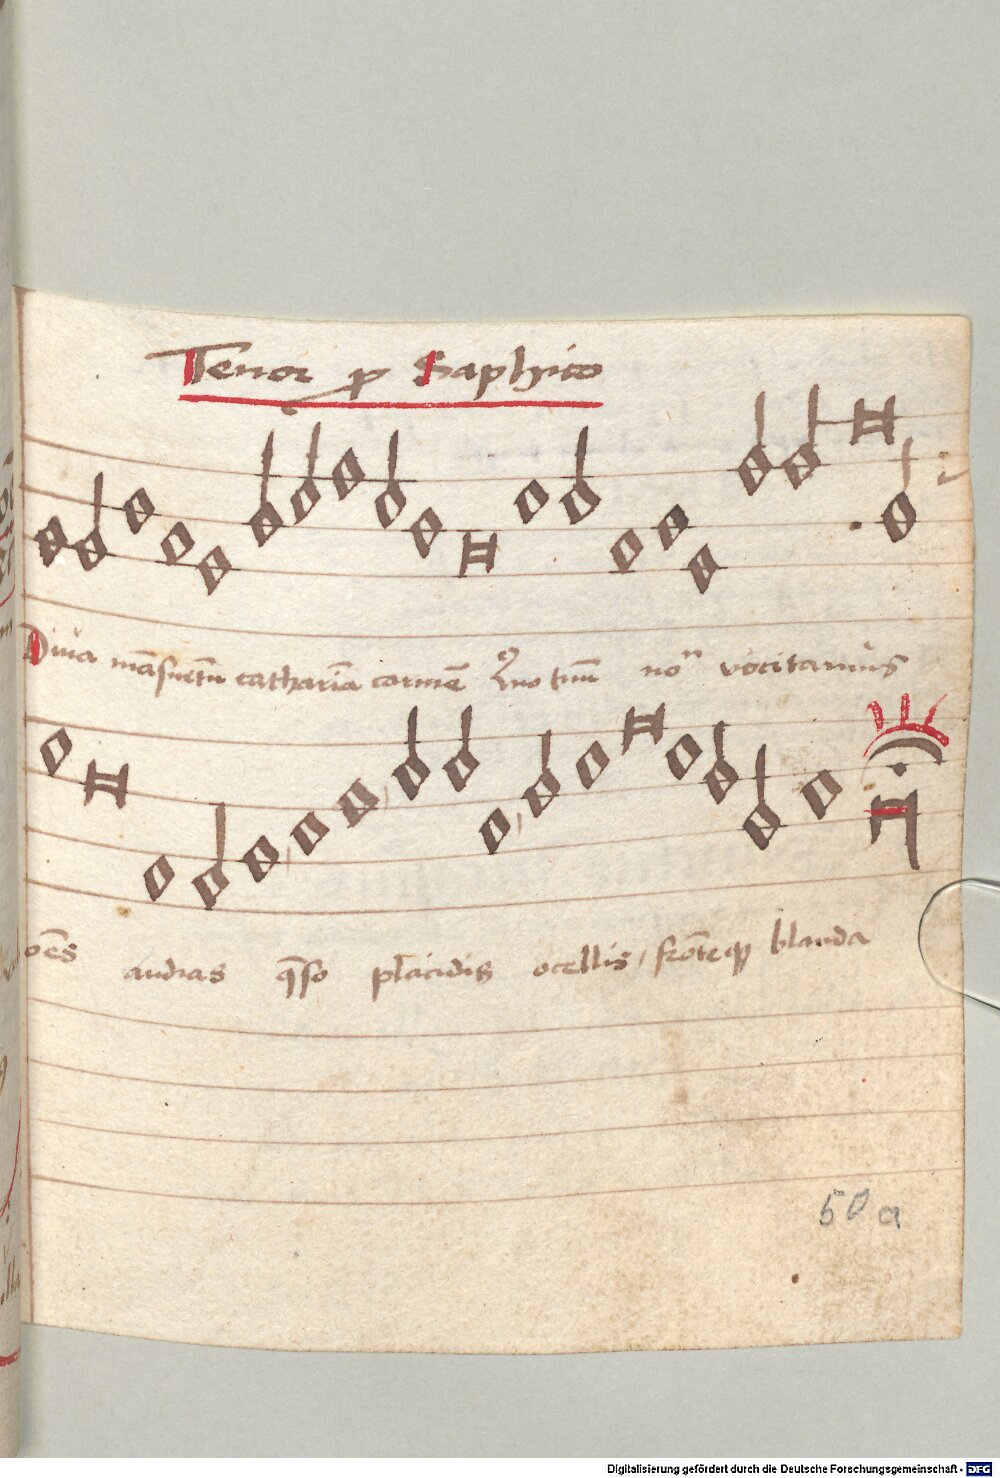 Tenor p Saphico
Diua māsuetū catharīa carmē Quo tuū no vocitamus
oēs audias q̄so placidis ocellis / frōteqꝫ blanda
50a
Digitalisierung gefördert durch die Deutsche Forschungsgemeinschaft - DFG